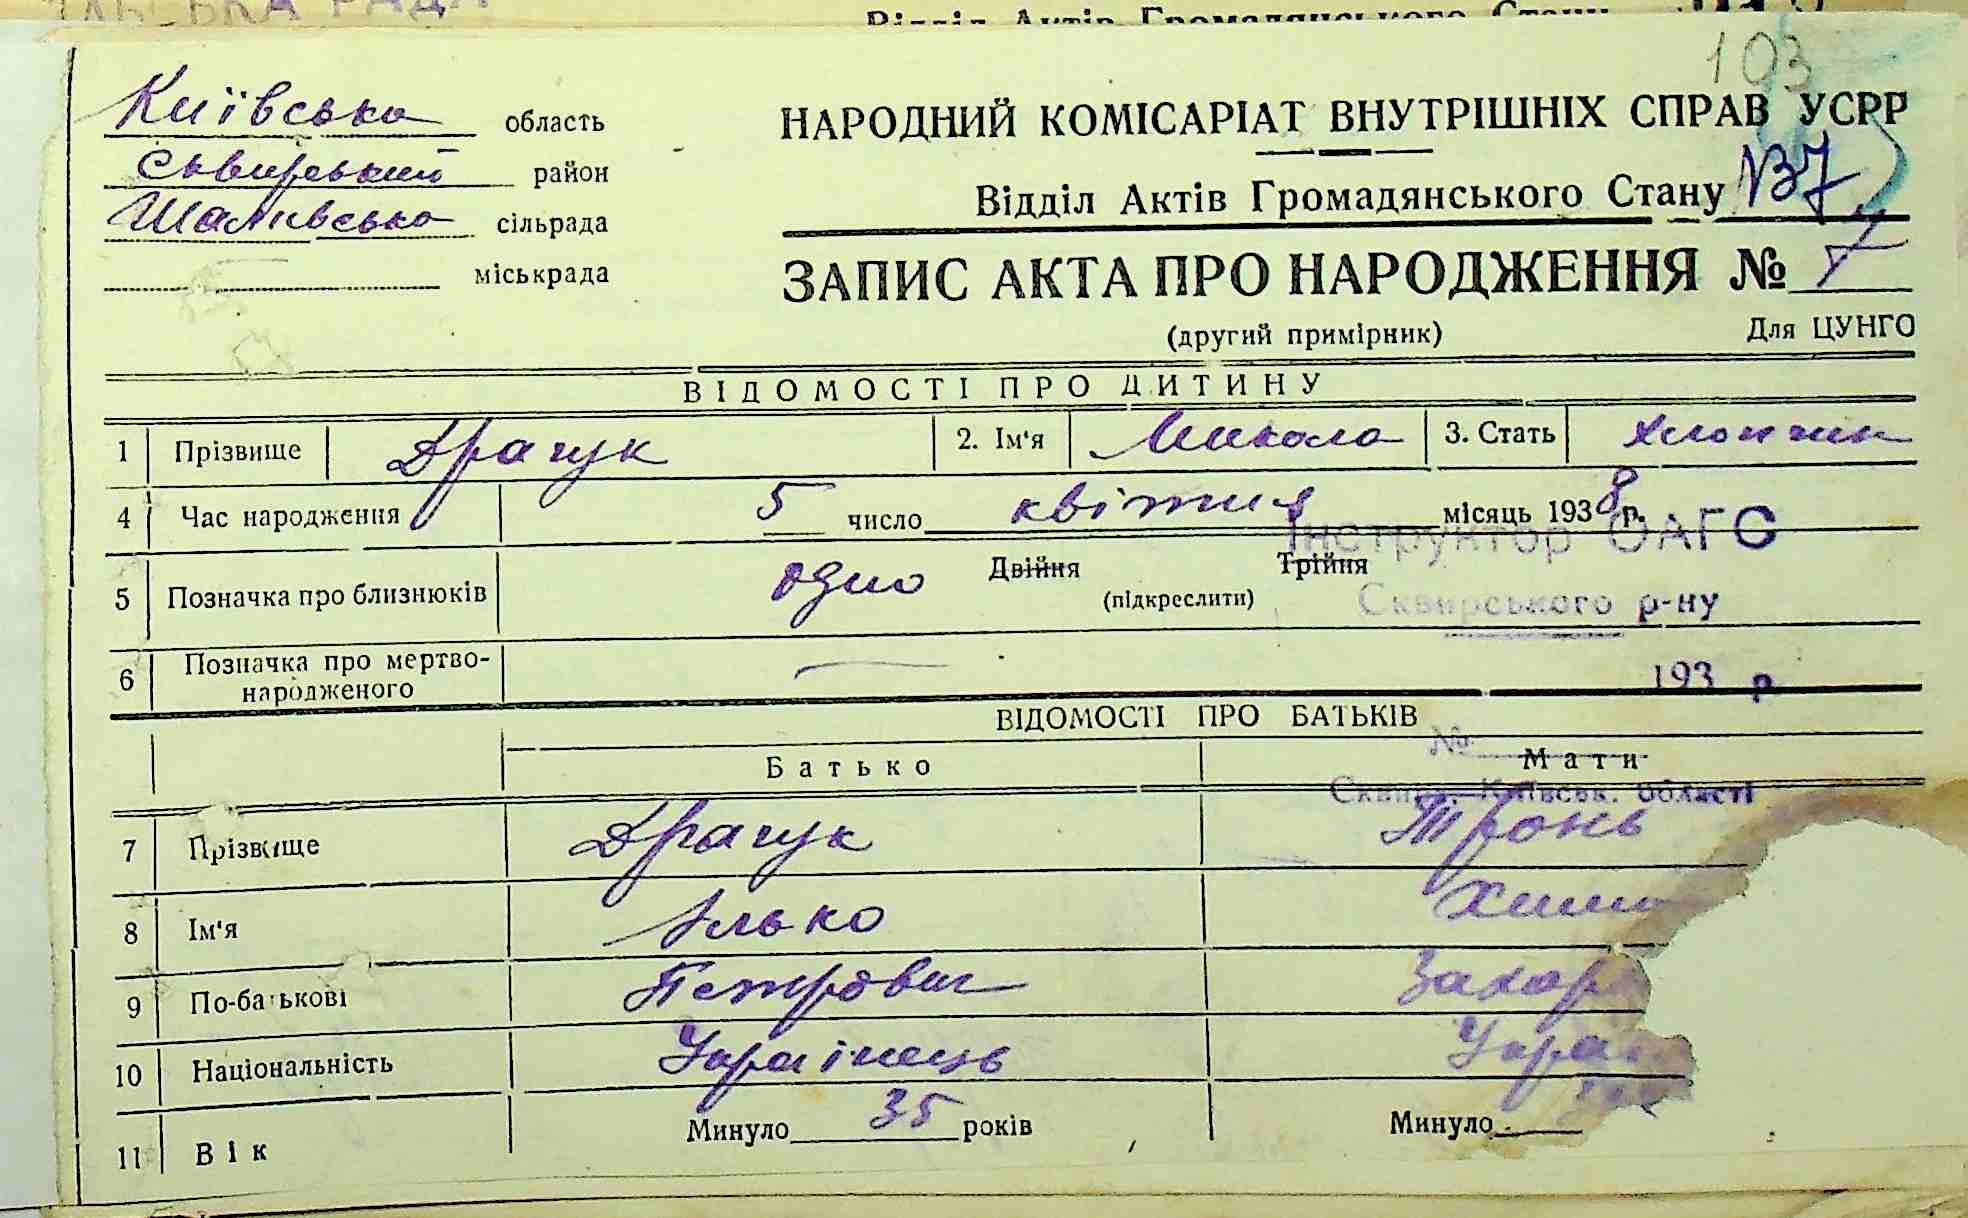 Відділ Актів Громадянського Стану
193
Київська область
Сквирський район
Шамівська сільрада
міськрада
НАРОДНИЙ КОМІСАРІАТ ВНУТРІШНІХ СПРАВ УСРР
Відділ Актів Громадянського Стану №37
ЗАПИС АКТА ПРО НАРОДЖЕННЯ № 7
(другий примірник) Для ЦУНГО
ВІДОМОСТІ ПРО ДИТИНУ
1 Прізвище Драчук 2. Ім'я Микола 3. Стать Хлопчик
4 Час народження 5 число квітня місяць 1938 р.
Інструктор ОАГС
5 Позначка про близнюків одно Двійня Трійня
(підкреслити)
Сквирського р-ну
6 Позначка про мертво-
народженого
193 р.
ВІДОМОСТІ ПРО БАТЬКІВ
№
Батько Мати
Сквира, Київськ. області
7 Прізвище Драчук Тронь
8 Ім'я Ілько
9 По-батькові Петрович Захар
10 Національність Українець Украї
11 Вік Минуло 35 років Минуло